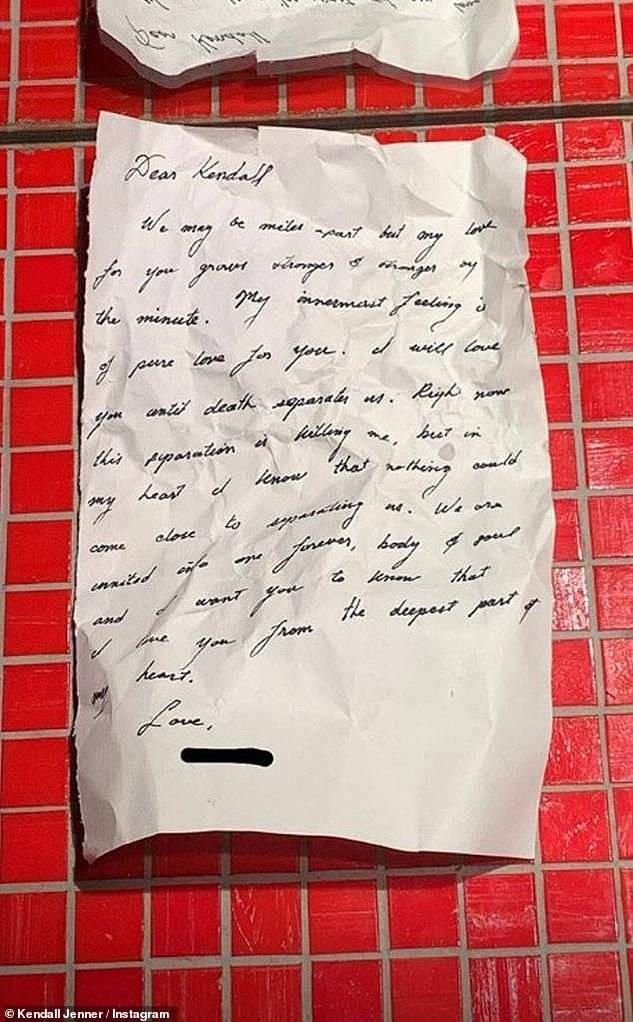 Dear Kendall
Dear Kendall
We may be miles -part but my love
for you grows stronger & stronger by
the minute. My innermost feeling is
of pure love for you. I will love
you until death separates us. Righ now
this separation is killing me, but in
my heart I know that nothing could
come close to separating us. We are
unnited into one forever, body & soul
and I want you to know that
I love you from the deepest part of
my heart.
Love,
© Kendall Jenner / Instagram